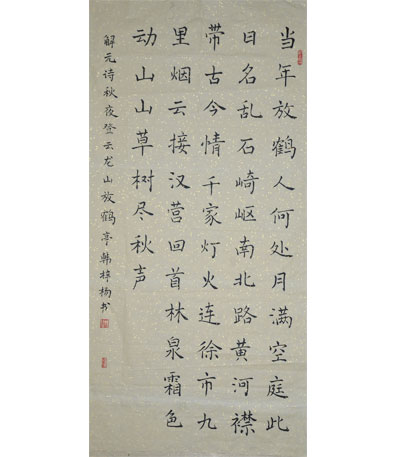 当年放鹤人何处月满空庭此
日名乱石崎岖南北路黄河襟
带古今情千家灯火连徐市九
里烟云接汉营回首林泉霜色
动山山草树尽秋声
解元诗秋夜登云龙山放鹤亭韩梓杨书